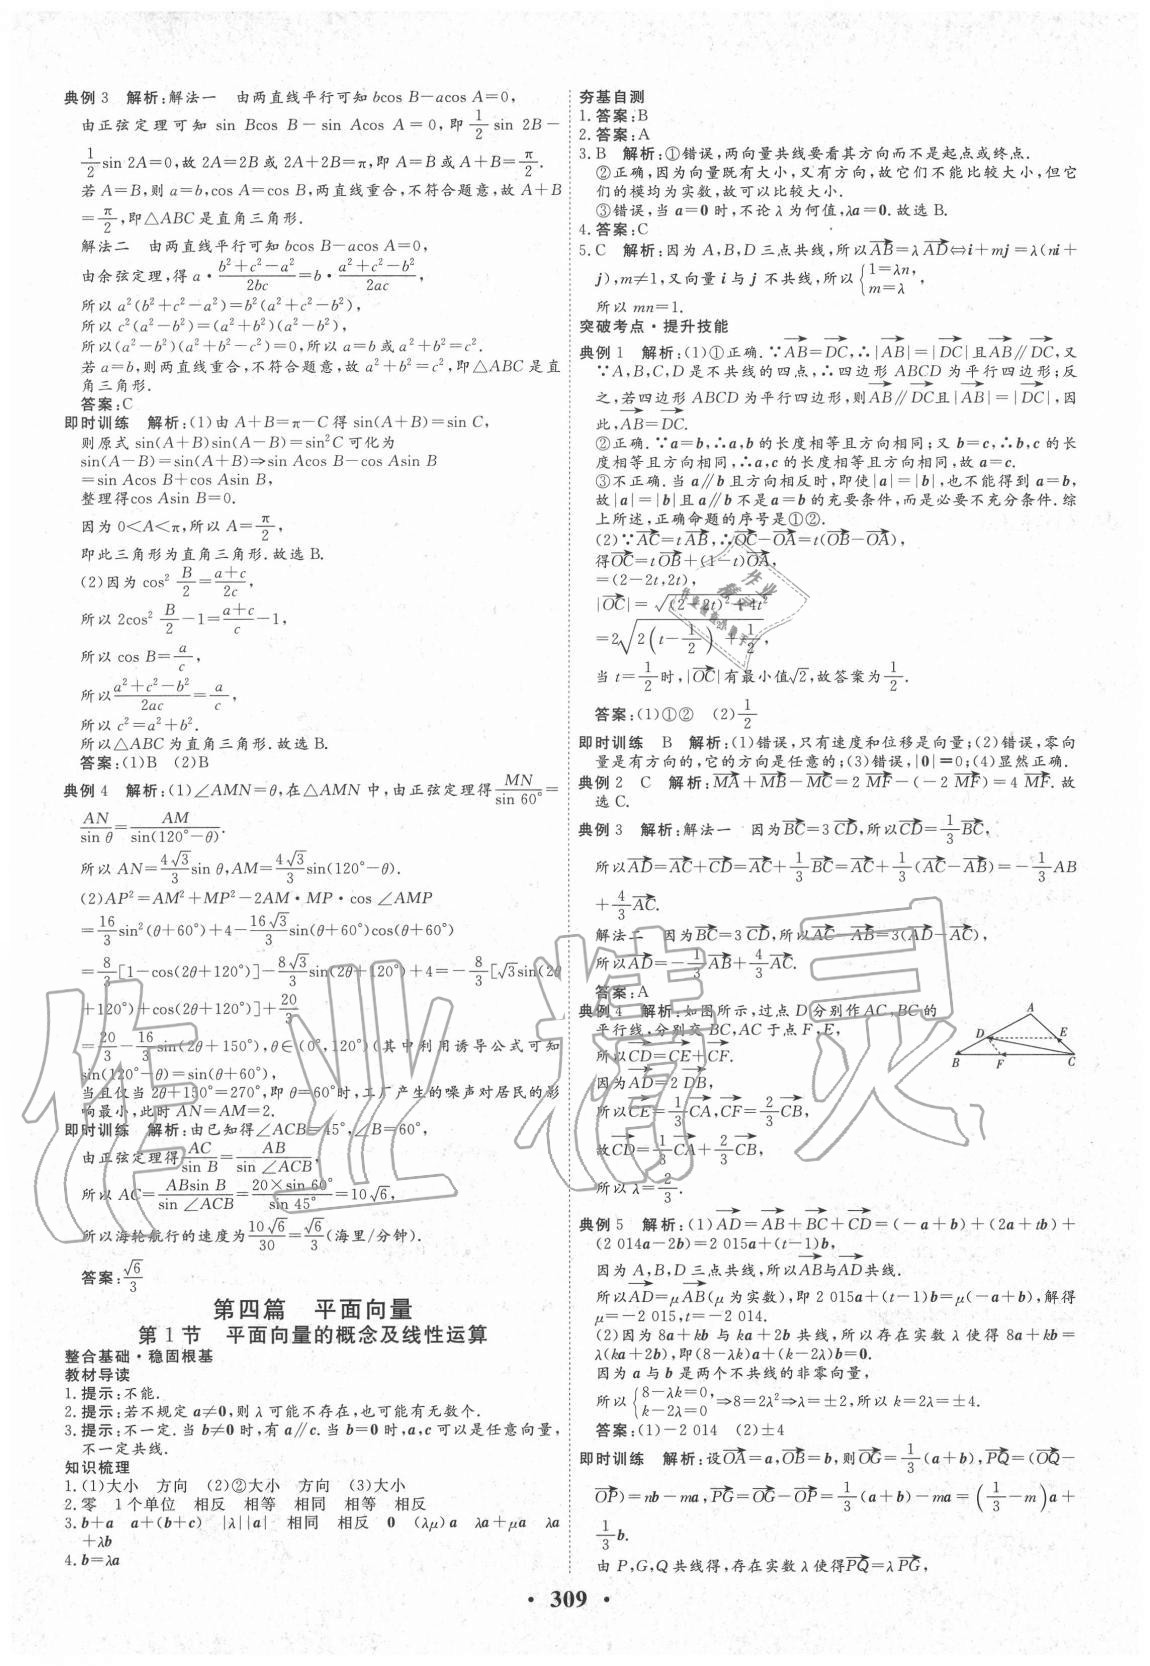 典例 3　解析:解法一　由两直线平行可知 bcos B-acos A=0,
由正弦定理可知 sin Bcos B-sin Acos A=0,即 1/2 sin 2B-
1/2 sin 2A=0,故 2A=2B 或 2A+2B=π,即 A=B 或 A+B=π/2.
若 A=B,则 a=b,cos A=cos B,两直线重合,不符合题意,故 A+B
=π/2,即△ABC 是直角三角形.
解法二　由两直线平行可知 bcos B-acos A=0,
由余弦定理,得 a·(b²+c²-a²)/2bc=b·(a²+c²-b²)/2ac,
所以 a²(b²+c²-a²)=b²(a²+c²-b²),
所以 c²(a²-b²)=(a²+b²)(a²-b²),
所以(a²-b²)(a²+b²-c²)=0,所以 a=b 或 a²+b²=c².
若 a=b,则两直线重合,不符合题意,故 a²+b²=c²,即△ABC 是直
角三角形.
答案:C
即时训练　解析:(1)由 A+B=π-C 得 sin(A+B)=sin C,
则原式 sin(A+B)sin(A-B)=sin²C 可化为
sin(A-B)=sin(A+B)⇒sin Acos B-cos Asin B
=sin Acos B+cos Asin B,
整理得cos Asin B=0.
因为 0<A<π,所以 A=π/2,
即此三角形为直角三角形.故选 B.
(2)因为 cos² B/2=(a+c)/2c,
所以 2cos² B/2-1=(a+c)/c-1,
所以 cos B=a/c,
所以(a²+c²-b²)/2ac=a/c,
所以 c²=a²+b².
所以△ABC 为直角三角形.故选 B.
答案:(1)B　(2)B
典例 4　解析:(1)∠AMN=θ,在△AMN 中,由正弦定理得MN/sin 60°=
AN/sin θ=AM/sin(120°-θ).
所以 AN=4√3/3 sin θ,AM=4√3/3 sin(120°-θ).
(2)AP²=AM²+MP²-2AM·MP·cos ∠AMP
=16/3 sin²(θ+60°)+4-16√3/3 sin(θ+60°)cos(θ+60°)
=8/3[1-cos(2θ+120°)]-8√3/3 sin(2θ+120°)+4=-8/3[√3sin(2θ
+120°)+cos(2θ+120°)]+20/3
=20/3-16/3 sin(2θ+150°),θ∈(0°,120°)(其中利用诱导公式可知
sin(120°-θ)=sin(θ+60°),
当且仅当 2θ+150°=270°,即 θ=60°时,工厂产生的噪声对居民的影
响最小,此时 AN=AM=2.
即时训练　解析:由已知得∠ACB=45°,∠B=60°,
由正弦定理得AC/sin B=AB/sin ∠ACB,
所以 AC=ABsin B/sin ∠ACB=20×sin 60°/sin 45°=10√6,
所以海轮航行的速度为10√6/30=√6/3(海里/分钟).
答案:√6/3
第四篇　平面向量
第 1 节　平面向量的概念及线性运算
整合基础·稳固根基
教材导读
1.提示:不能.
2.提示:若不规定 a≠0,则 λ 可能不存在,也可能有无数个.
3.提示:不一定.当 b≠0 时,有 a∥c.当 b=0 时,a,c 可以是任意向量,
不一定共线.
知识梳理
1.(1)大小　方向　(2)②大小　方向　(3)大小
2.零　1 个单位　相反　相等　相同　相等　相反
3.b+a　a+(b+c)　|λ||a|　相同　相反　0　(λμ)a　λa+μa　λa
+λb
4.b=λa
夯基自测
1.答案:B
2.答案:A
3.B　解析:①错误,两向量共线要看其方向而不是起点或终点.
②正确,因为向量既有大小,又有方向,故它们不能比较大小,但它
们的模均为实数,故可以比较大小.
③错误,当 a=0 时,不论 λ 为何值,λa=0.故选 B.
4.答案:C
5.C　解析:因为 A,B,D 三点共线,所以 AB=λ AD⇔i+mj=λ(ni+
j),m≠1,又向量 i 与 j 不共线,所以{1=λn, m=λ,
所以 mn=1.
突破考点·提升技能
典例 1　解析:(1)①正确.∵AB=DC,∴|AB|=|DC|且AB∥DC,又
∵A,B,C,D 是不共线的四点,∴四边形 ABCD 为平行四边形;反
之,若四边形 ABCD 为平行四边形,则AB∥DC且|AB|=|DC|,因
此,AB=DC.
②正确.∵a=b,∴a,b 的长度相等且方向相同;又 b=c,∴b,c 的长
度相等且方向相同,∴a,c 的长度相等且方向相同,故 a=c.
③不正确.当 a∥b 且方向相反时,即使|a|=|b|,也不能得到 a=b,
故|a|=|b|且 a∥b 不是 a=b 的充要条件,而是必要不充分条件.综
上所述,正确命题的序号是①②.
(2)∵AC=tAB,∴OC-OA=t(OB-OA),
得OC=tOB+(1-t)OA,
=(2-2t,2t),
|OC|=√((2-2t)²+4t²)
=2√(2(t-1/2)²+1/2),
当 t=1/2时,|OC|有最小值√2,故答案为1/2.
答案:(1)①②　(2)1/2
即时训练　B　解析:(1)错误,只有速度和位移是向量;(2)错误,零向
量是有方向的,它的方向是任意的;(3)错误,|0|=0;(4)显然正确.
典例 2　C　解析:MA+MB-MC=2 MF-(-2 MF)=4 MF.故
选 C.
典例 3　解析:解法一　因为BC=3 CD,所以CD=1/3 BC,
所以AD=AC+CD=AC+1/3 BC=AC+1/3(AC-AB)=-1/3 AB
+4/3 AC.
解法二　因为BC=3 CD,所以AC-AB=3(AD-AC),
所以AD=-1/3 AB+4/3 AC.
答案:A
典例 4　解析:如图所示,过点 D 分别作 AC,BC 的
平行线,分别交 BC,AC 于点 F,E,
所以CD=CE+CF.
因为AD=2 DB,
所以CE=1/3 CA,CF=2/3 CB,
故CD=1/3 CA+2/3 CB,
所以 λ=2/3.
A
D
E
B
F
C
典例 5　解析:(1)AD=AB+BC+CD=(-a+b)+(2a+tb)+
(2 014a-2b)=2 015a+(t-1)b,
因为 A,B,D 三点共线,所以AB与AD共线.
所以AD=μAB(μ 为实数),即 2 015a+(t-1)b=μ(-a+b),解得
μ=-2 015,t=-2 014.
(2)因为 8a+kb 与 ka+2b 共线,所以存在实数 λ 使得 8a+kb=
λ(ka+2b),即(8-λk)a+(k-2λ)b=0.
因为 a 与 b 是两个不共线的非零向量,
所以{8-λk=0, k-2λ=0⇒8=2λ²⇒λ=±2,所以 k=2λ=±4.
答案:(1)-2 014　(2)±4
即时训练　解析:设OA=a,OB=b,则OG=1/3(a+b),PQ=(OQ-
OP)=nb-ma,PG=OG-OP=1/3(a+b)-ma=(1/3-m)a+
1/3 b.
由 P,G,Q 共线得,存在实数 λ 使得PQ=λ PG,
· 309 ·
作业精灵